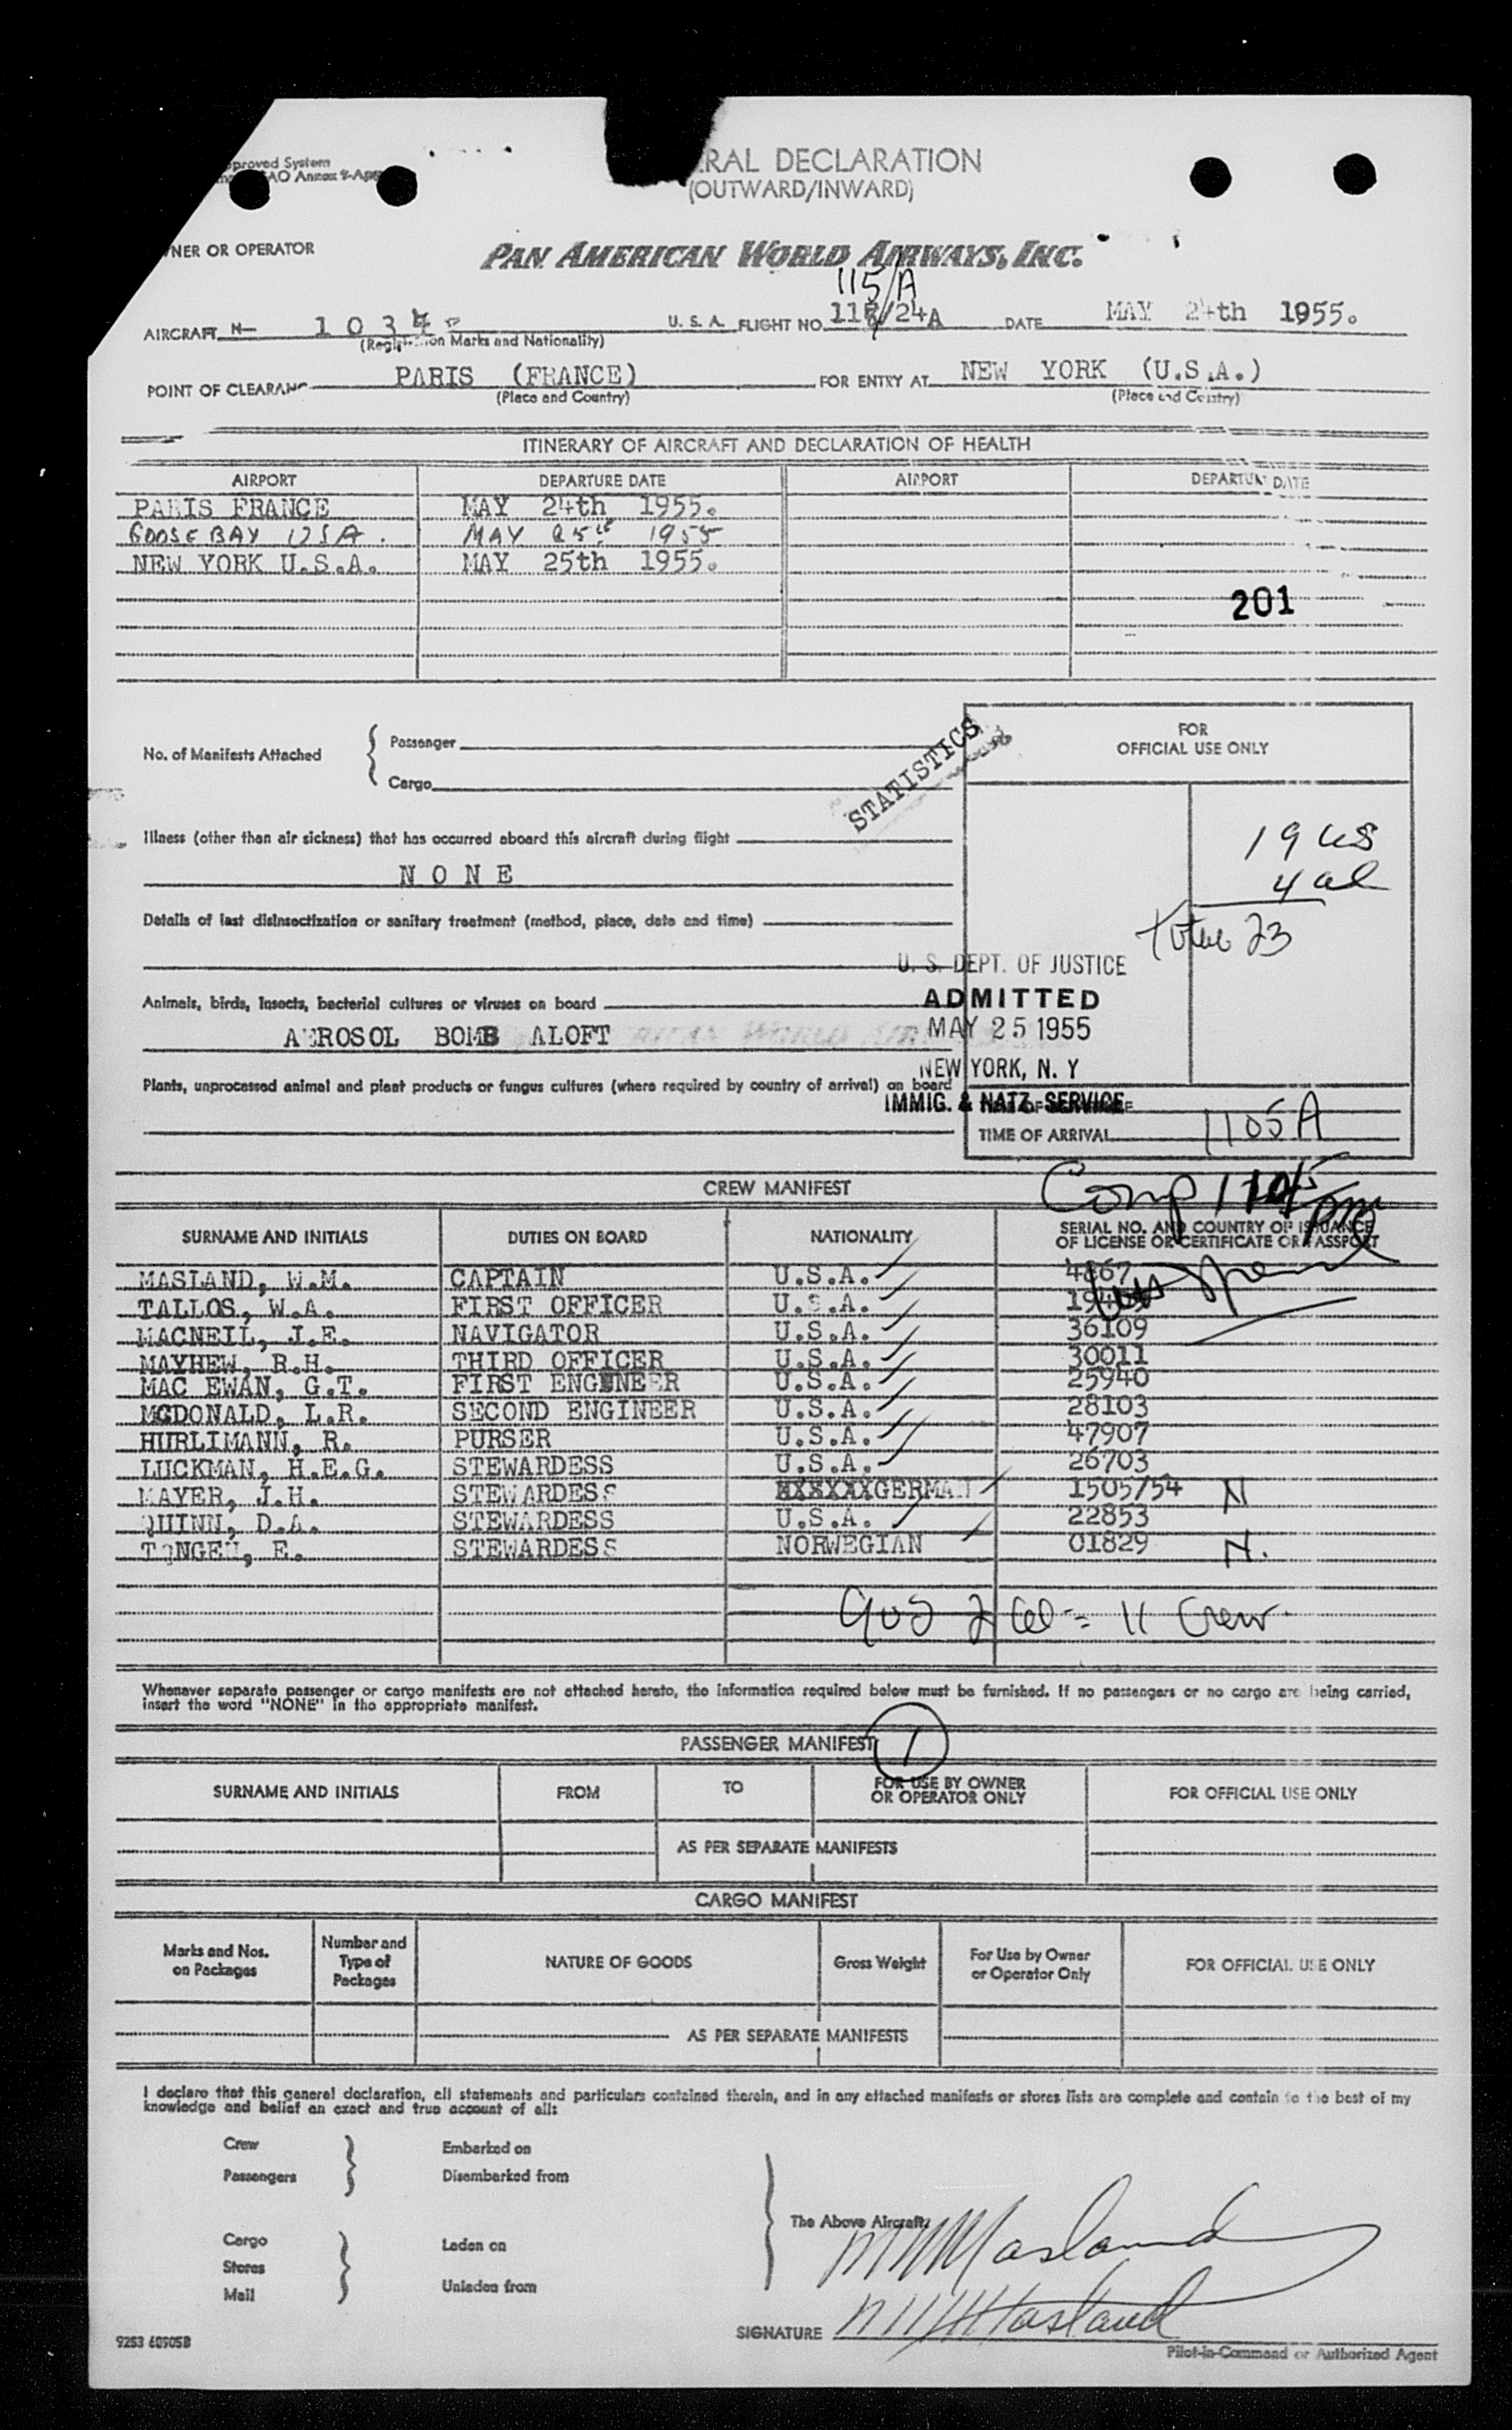 proved System
AO Annex 9-App
RAL DECLARATION
(OUTWARD/INWARD)
NER OR OPERATOR
PAN AMERICAN WORLD AIRWAYS, INC.
115/A
AIRCRAFT N- 103 U. S. A. FLIGHT NO. 118/24A DATE MAY 24th 1955.
(Registration Marks and Nationality)
POINT OF CLEARANC PARIS (FRANCE) FOR ENTRY AT NEW YORK (U.S.A.)
(Place and Country) (Place and Country)
ITINERARY OF AIRCRAFT AND DECLARATION OF HEALTH
AIRPORT DEPARTURE DATE AIRPORT DEPARTURE DATE
PARIS FRANCE MAY 24th 1955.
GOOSE BAY USA. MAY 25th 1955
NEW YORK U.S.A. MAY 25th 1955.
201
FOR
OFFICIAL USE ONLY
No. of Manifests Attached
Passenger
Cargo
STATISTICS
Illness (other than air sickness) that has occurred aboard this aircraft during flight
NONE
19 us
4 al
Total 23
Details of last disinsectization or sanitary treatment (method, place, date and time)
U. S. DEPT. OF JUSTICE
Animals, birds, insects, bacterial cultures or viruses on board
ADMITTED
AEROSOL BOMB ALOFT
MAY 25 1955
NEW YORK, N. Y
Plants, unprocessed animal and plant products or fungus cultures (where required by country of arrival) on board
IMMIG. & NATZ. SERVICE
TIME OF ARRIVAL 1105A
CREW MANIFEST
Comp
SURNAME AND INITIALS DUTIES ON BOARD NATIONALITY SERIAL NO. AND COUNTRY OF ISSUANCE
OF LICENSE OR CERTIFICATE OR PASSPORT
MASLAND, W.M. CAPTAIN U.S.A. 4867
TALLOS, W.A. FIRST OFFICER U.S.A.
MACNEIL, J.E. NAVIGATOR U.S.A. 36109
MAYHEW, R.H. THIRD OFFICER U.S.A. 30011
MAC EWAN, G.T. FIRST ENGINEER U.S.A. 25940
MCDONALD, L.R. SECOND ENGINEER U.S.A. 28103
HURLIMANN, R. PURSER U.S.A. 47907
LUCKMAN, H.E.G. STEWARDESS U.S.A. 26703
MAYER, J.H. STEWARDESS XXXXXXGERMAN 1505/54 N
QUINN, D.A. STEWARDESS U.S.A. 22853
E. STEWARDESS NORWEGIAN 01829 N.
9 US 2 al = 11 Crew
Whenever separate passenger or cargo manifests are not attached hereto, the information required below must be furnished. If no passengers or no cargo are being carried,
insert the word "NONE" in the appropriate manifest.
PASSENGER MANIFEST 1
SURNAME AND INITIALS FROM TO FOR USE BY OWNER
OR OPERATOR ONLY FOR OFFICIAL USE ONLY
AS PER SEPARATE MANIFESTS
CARGO MANIFEST
Marks and Nos.
on Packages Number and
Type of
Packages NATURE OF GOODS Gross Weight For Use by Owner
or Operator Only FOR OFFICIAL USE ONLY
AS PER SEPARATE MANIFESTS
I declare that this general declaration, all statements and particulars contained therein, and in any attached manifests or stores lists are complete and contain to the best of my
knowledge and belief an exact and true account of all:
Crew Embarked on
Passengers Disembarked from
The Above Aircraft.
WMMasland
Cargo Laden on
Stores
Mail Unladen from
SIGNATURE WMMasland
Pilot-in-Command or Authorized Agent